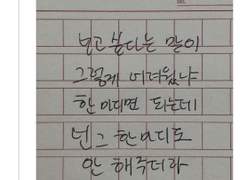 보고 싶다는 말이
그렇게 어려웠냐
한 마디면 되는데
넌 그 한 마디도
안 해주더라